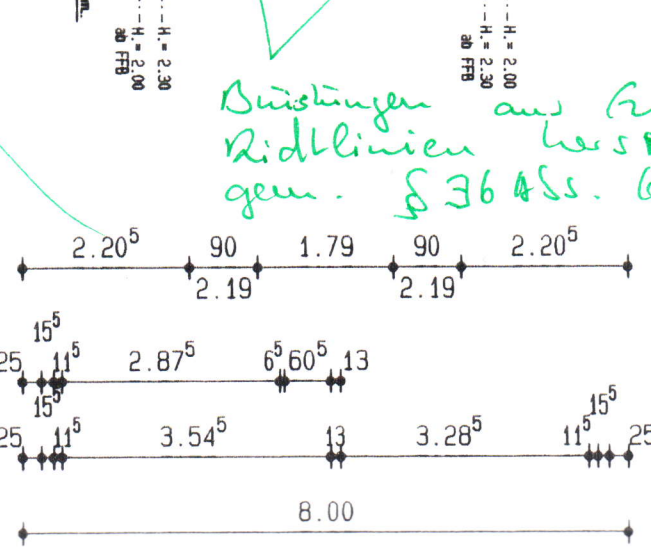 m.
H. = 2.30
H. = 2.00
ab FFB
H. = 2.00
H. = 2.30
ab FFB
Brüstungen aus
Richtlinien hers
gem. § 36 Abs.
2.20⁵ 90 1.79 90 2.20⁵
2.19 2.19
15⁵
25 11⁵ 2.87⁵ 6⁵ 60⁵ 13
15⁵ 15⁵
25 11⁵ 3.54⁵ 13 3.28⁵ 11⁵ 25
8.00